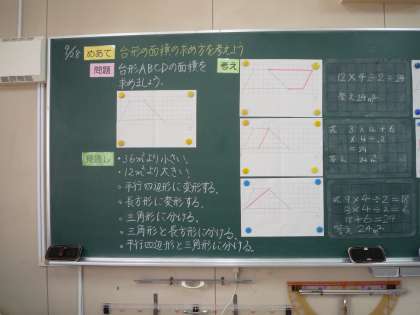 9/28 めあて 台形の面積の求め方を考えよう
問題 台形ABCDの面積を
求めましょう。
見通し
・36㎡より小さい。
・12㎡より大きい。
・平行四辺形に変形する。
・長方形に変形する。
・三角形に分ける。
・三角形と長方形に分ける。
・平行四辺形と三角形に分ける。
考え
12×4÷2=24
答え 24㎡
式
=24
答え 24㎡
式 9×4÷2=18
3×4÷2=6
18+6=24
答え 24㎡